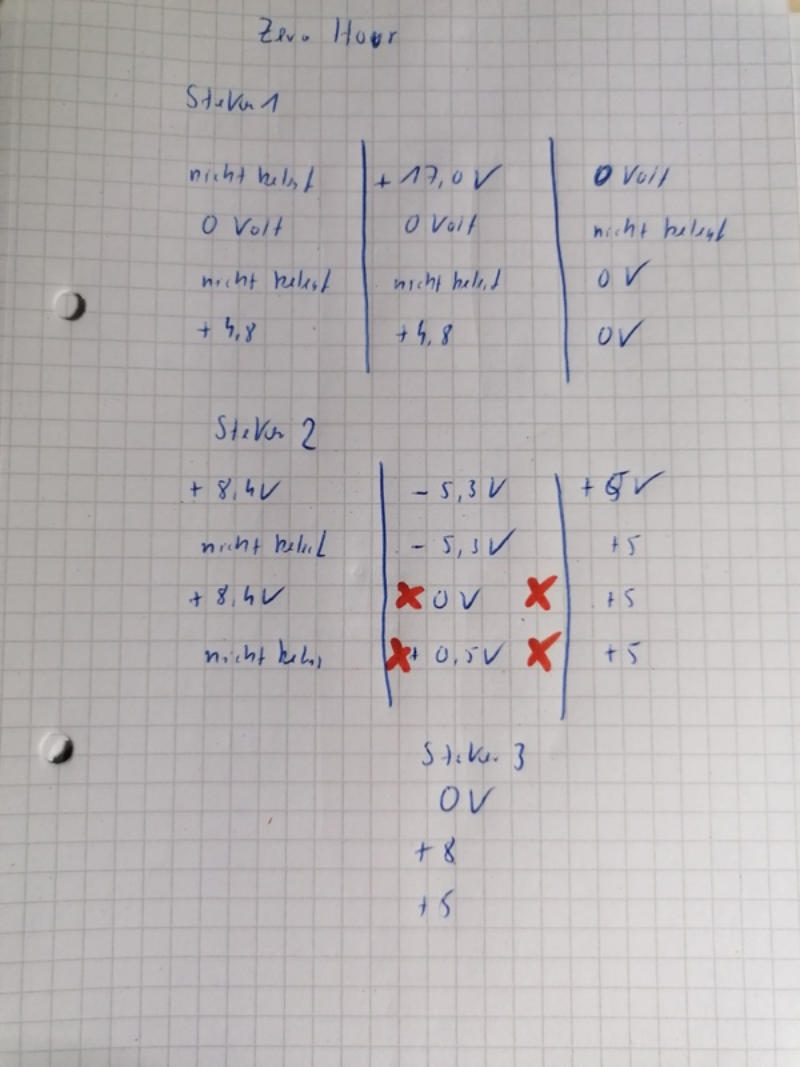 Zero Hour
Stecker 1
nicht belegt + 17,0 V 0 Volt
0 Volt 0 Volt nicht belegt
nicht belegt nicht belegt 0 V
+ 4,8 + 4,8 0V
Stecker 2
+ 8,4V - 5,3 V + 5 V
nicht belegt - 5,3 V + 5
+ 8,4V 0 V + 5
nicht belegt + 0,5V + 5
Stecker 3
0V
+ 8
+ 5